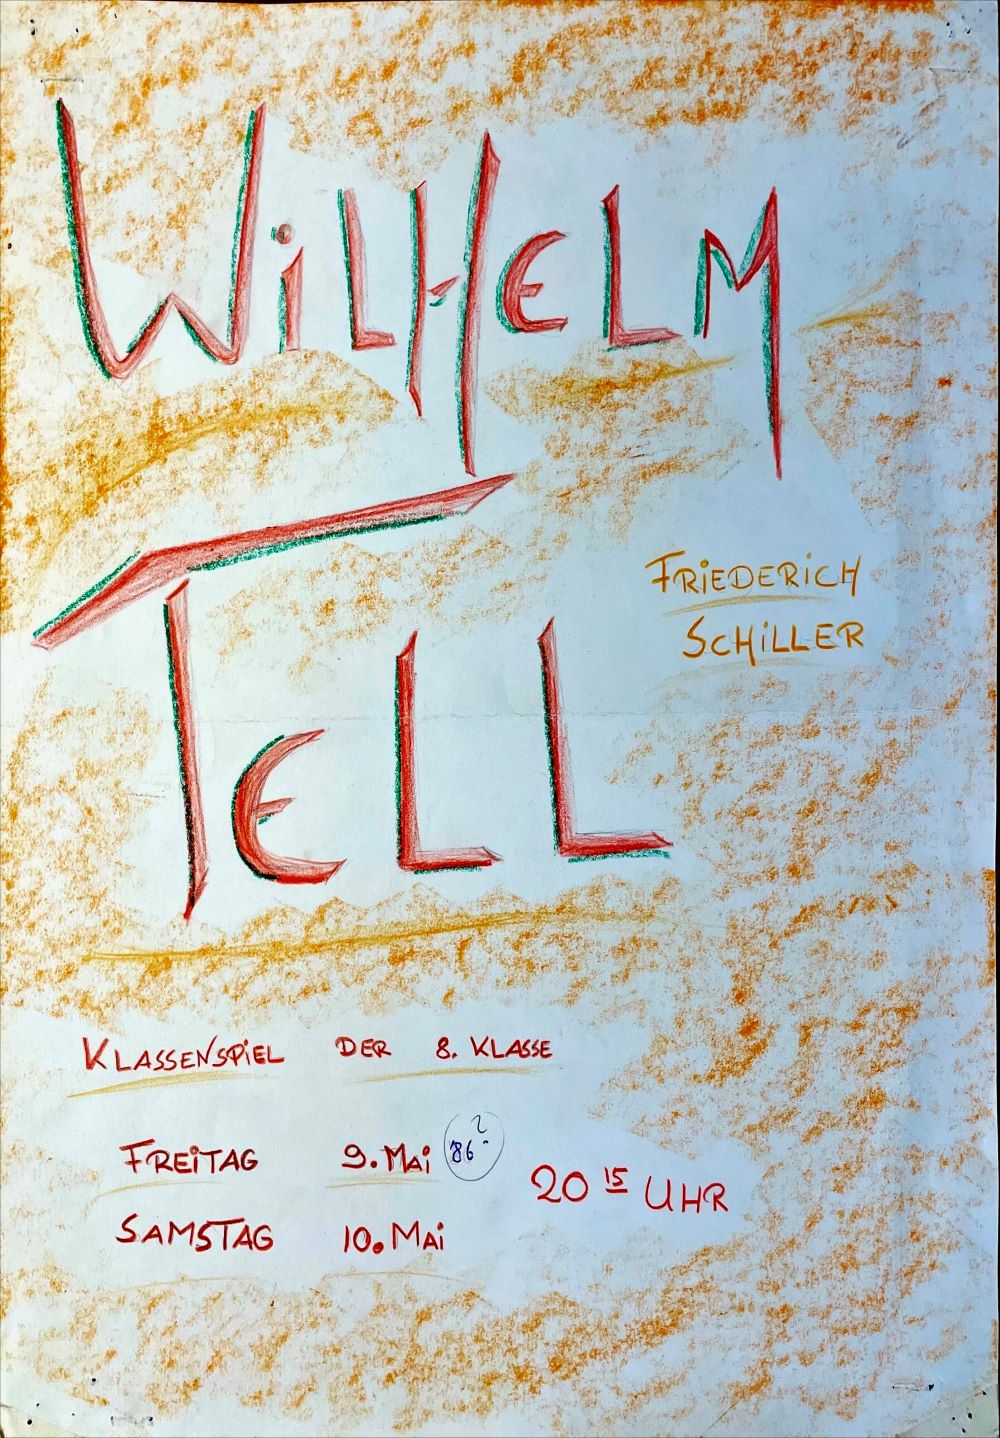 WiLHELM
TELL
FRiEDERiCH
SCHiLLER
KLASSENSPiEL DER 8. KLASSE
FREiTAG 9. MAi 86?
SAMSTAG 10. MAi
20 15 UHR